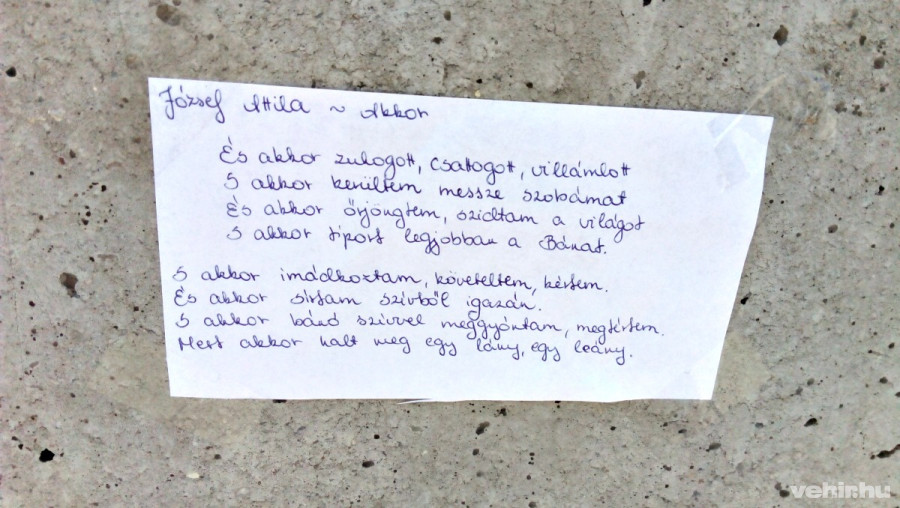 József Attila ~ Akkor
És akkor zuhogott, csattogott, villámlott
S akkor kerültem messze szobámat
És akkor őrjöngtem, szidtam a világot
S akkor tiport legjobban a Bánat.
S akkor imádkoztam, követeltem, kértem.
És akkor sírtam szívből igazán.
S akkor bánó szívvel meggyóntam, megtértem.
Mert akkor halt meg egy lány, egy leány.
vehir.hu